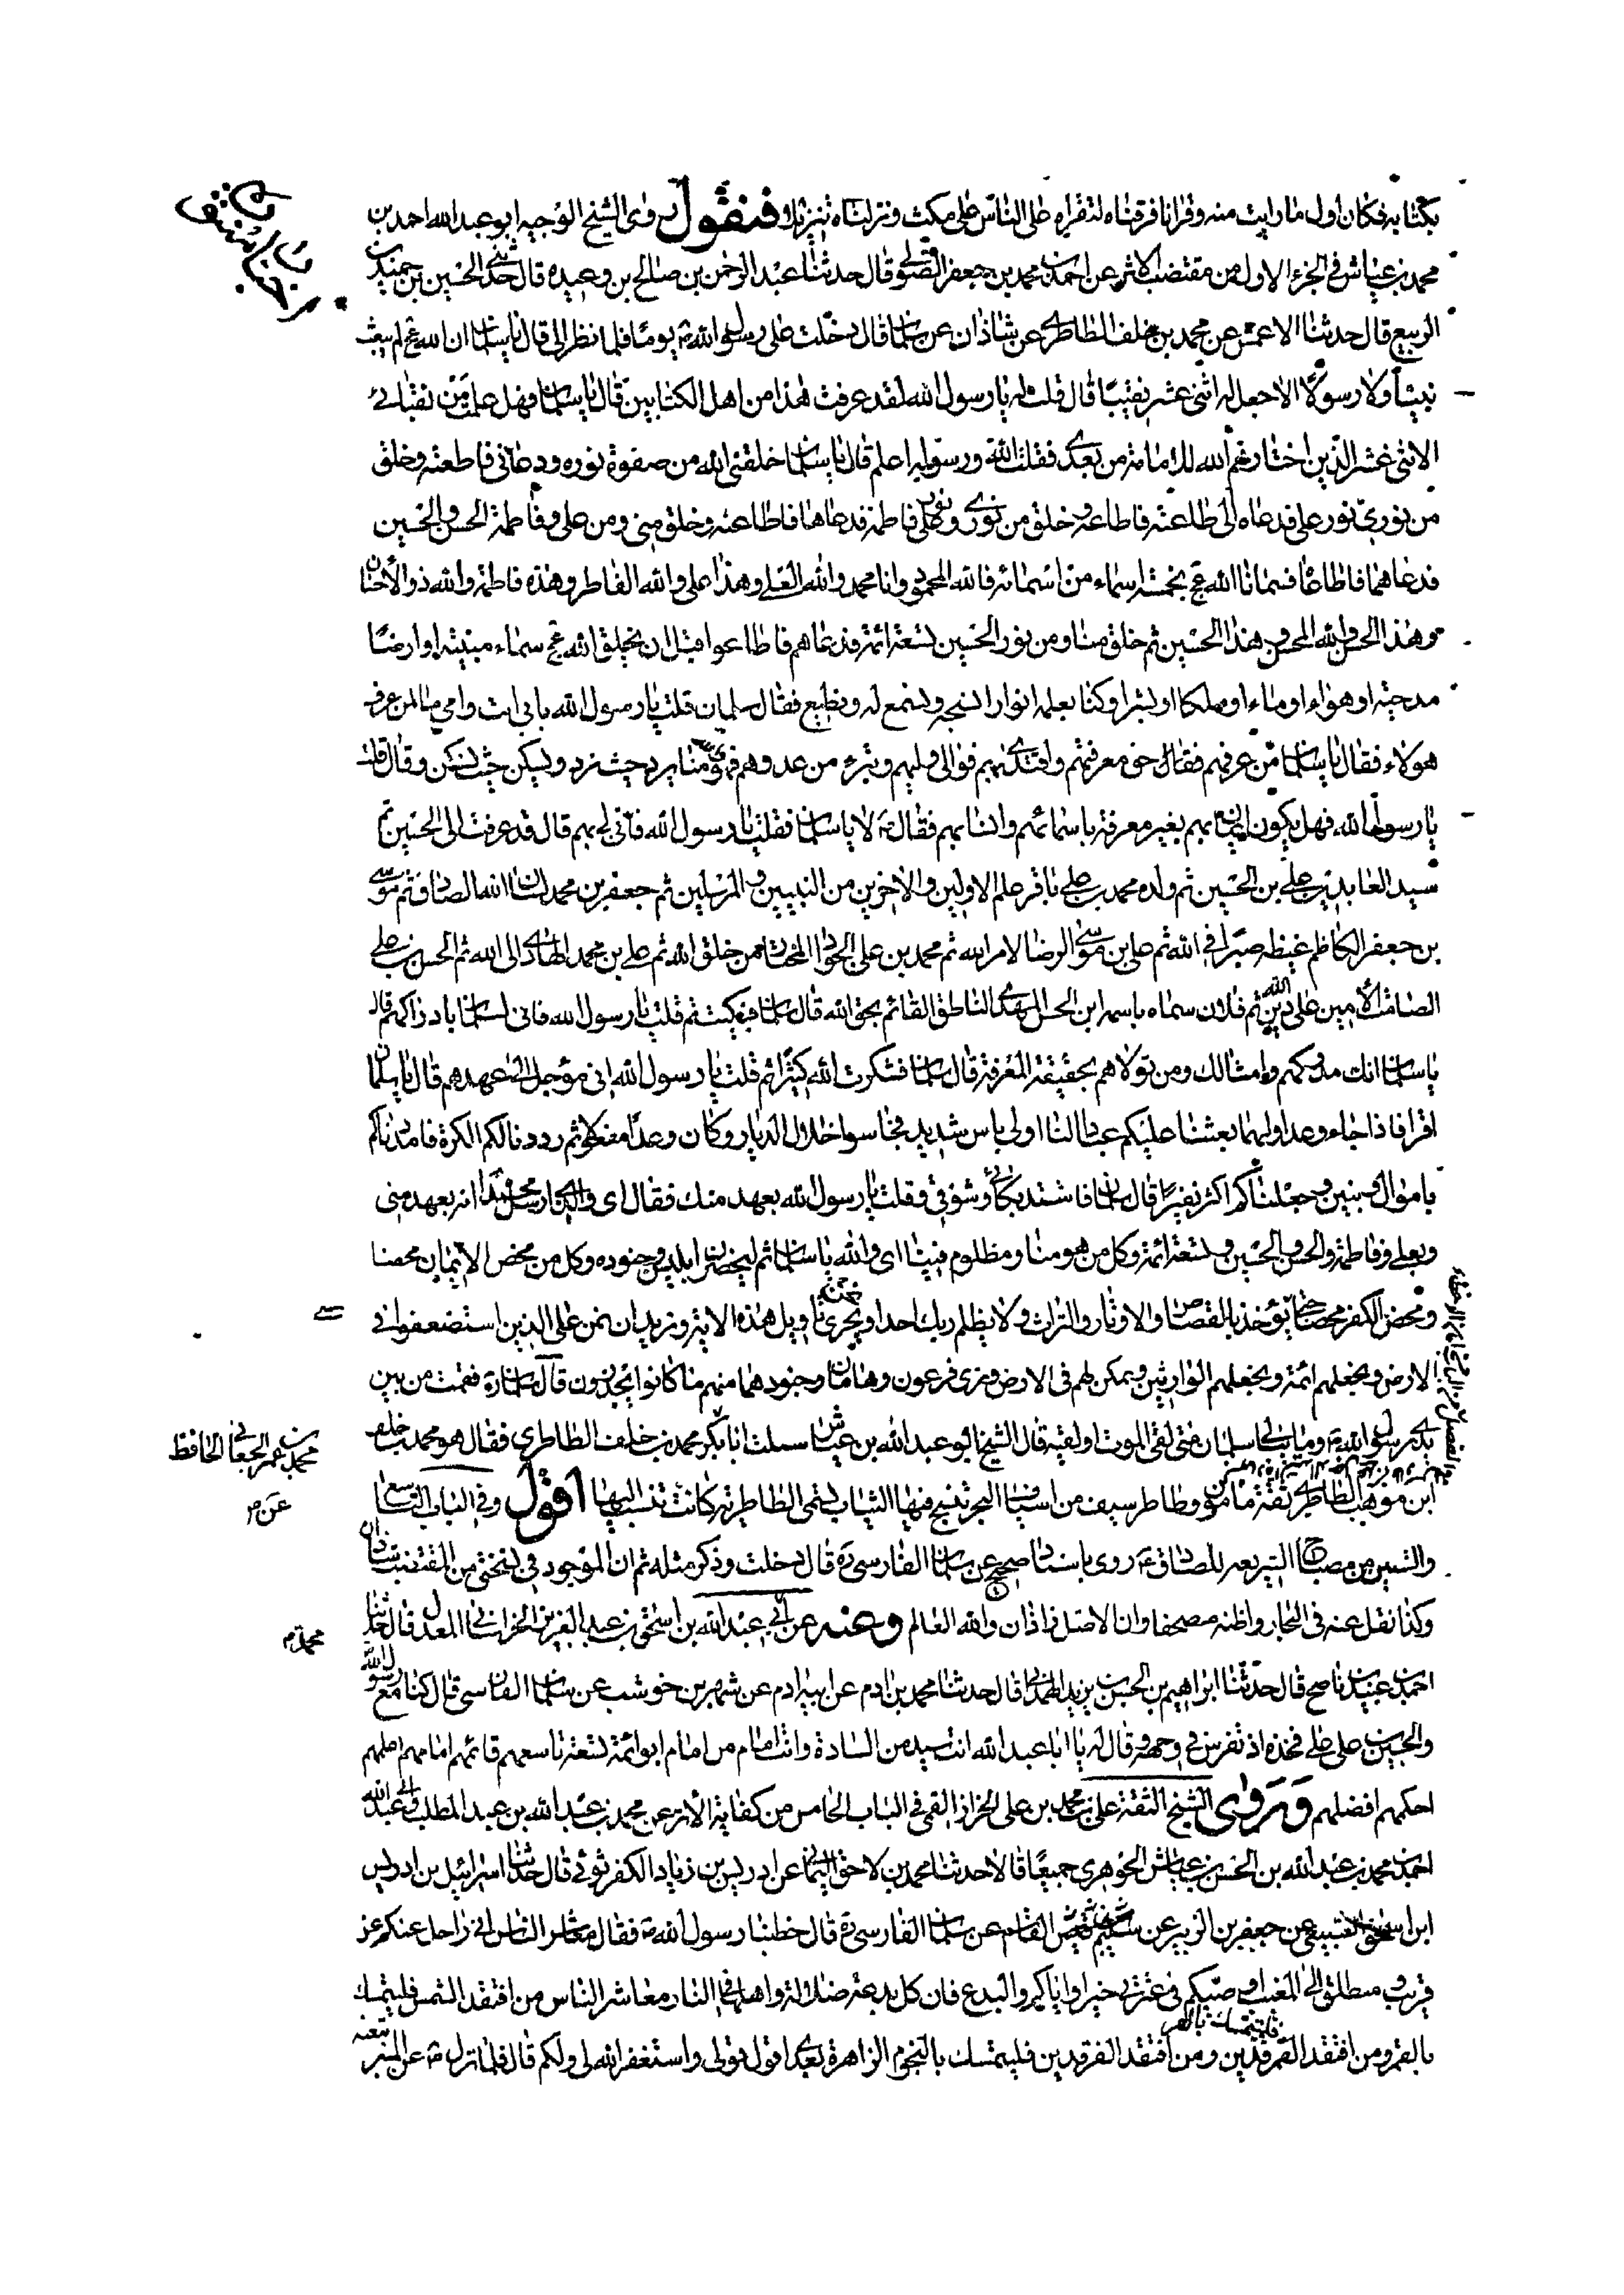 بكتابه فكان اول ما رايت منه وقرانا فرقناه لتقراه على الناس على مكث ونزلناه تنزيلا فنقول روى الشيخ الوجيه ابو عبد الله احمد بن
محمد بن عياش في الجزء الاول من مقتضب الاثر عن احمد بن محمد بن جعفر الصولي قال حدثنا عبد الرحمن بن صالح بن رعيده قال حدثني الحسين بن حميد بن
الربيع قال حدثنا الاعمش عن محمد بن خلف الطاطري عن شاذان عن سلمان قال دخلت على رسول الله ص يوما فلما نظر الى قال يا سلمان ان الله عج لم يبعث
نبيا ولا رسولا الا جعل له اثنى عشر نقيبا قال قلت له يا رسول الله لقد عرفت هذا من اهل الكتابين قال يا سلمان فهل علمت من نقبائي
الاثنى عشر الذين اختارهم الله للامامة من بعدي فقلت الله ورسوله اعلم قال يا سلمان خلقني الله من صفوة نوره ودعاني فاطعته وخلق
من نوري نور علي فدعاه الى طاعته فاطاعه وخلق من نوري ونور علي فاطمة فدعاها فاطاعته وخلق مني ومن علي وفاطمة الحسن والحسين
فدعاهما فاطاعاه فسمانا الله عج بخمسة اسماء من اسمائه فالله المحمود وانا محمد والله العلي وهذا علي والله الفاطر وهذه فاطمة والله ذو الاحسان
وهذا الحسن والله المحسن وهذا الحسين ثم خلق منا ومن نور الحسين تسعة ائمة فدعاهم فاطاعوا قبل ان يخلق الله عج سماء مبنية او ارضا
مدحية او هواء او ماء او ملكا او بشرا وكنا بعلمه انوارا نسبحه ونسمع له ونطيع فقال سلمان قلت يا رسول الله بابي انت وامي ما لمن عرف
هولاء فقال يا سلمان من عرفهم حق معرفتهم واقتدى بهم فوالى وليهم وتبرء من عدوهم فهو والله منا يرد حيث نرد ويسكن حيث نسكن وقال قلت
يا رسول الله فهل يكون ايمان بهم بغير معرفة باسمائهم وانسابهم فقال ص لا يا سلمان فقلت يا رسول الله فانى لي بهم قال قد عرفت الى الحسين ثم
سيد العابدين علي بن الحسين ثم ولده محمد بن علي باقر علم الاولين والاخرين من النبيين والمرسلين ثم جعفر بن محمد لسان الله الصادق ثم موسى
بن جعفر الكاظم غيظه صبرا في الله ثم علي بن موسى الرضا لامر الله ثم محمد بن علي الجواد المختار من خلق الله ثم علي بن محمد الهادي الى الله ثم الحسن بن علي
الصامت الامين على دين الله ثم فلان سماه باسمه ابن الحسن المهدي الناطق القائم بحق الله قال سلمان فبكيت ثم قلت يا رسول الله فانى لسلمان بادراكهم قال
يا سلمان انك مدركهم وامثالك ومن تولاهم بحقيقة المعرفة قال سلمان فشكرت الله كثيرا ثم قلت يا رسول الله اني مؤجل الى عهدهم قال يا سلمان
اقرا فاذا جاء وعد اوليهما بعثنا عليكم عبادا لنا اولى باس شديد فجاسوا خلال الديار وكان وعدا مفعولا ثم رددنا لكم الكرة فامددناكم
باموال وبنين وجعلناكم اكثر نفيرا قال سلمان فاشتد بكائي وشوقي وقلت يا رسول الله بعهد منك فقال اي والذي ارسل محمدا انه بعهد مني
وبعلي وفاطمة والحسن والحسين وتسعة ائمة وكل من هو منا ومظلوم فينا اي والله يا سلمان ثم ليحضرن ابليس وجنوده وكل من محض الايمان محضا
ومحض الكفر محضا حتى يؤخذ بالقصاص والاوتار والتراث ولا يظلم ربك احدا ويجري تاويل هذه الاية ونريد ان نمن على الذين استضعفوا في
الارض ونجعلهم ائمة ونجعلهم الوارثين ونمكن لهم في الارض ونرى فرعون وهامان وجنودهما منهم ما كانوا يحذرون قال سلمان ره فقمت من بين
يدي رسول الله ص وما يبالي سلمان متى لقى الموت او لقيه قال الشيخ ابو عبد الله بن عياش سئلت ابا بكر محمد بن عمر الجعابي الحافظ عن محمد بن خلف الطاطري فقال هو محمد بن خلف
ابن موهب الطاطري ثقة مامون وطاطر سيف من اسياف البحر تنسج فيها الثياب تسمى الطاطرية كانت تنسب اليها اقول وفي الباب التاسع
والتسعين من مصباح الشريعه للصادق ع روى باسناد صحيح عن سلمان الفارسي ره قال دخلت وذكر مثله ثم ان الموجود في نسختي من المقتضب شاذان
وكذا نقل عنه في البحار واظنه مصحفا وان الاصل زاذان والله العالم وعنه عن ابي عبد الله بن اسحق بن عبد العزيز الخراساني المعدل قال حدثنا
احمد بن عبيد بن ناصح قال حدثنا ابراهيم بن الحسن بن يزيد الهمداني قال حدثنا محمد بن ادم عن ابيه ادم عن شهر بن حوشب عن سلمان الفارسي قال كنا مع رسول الله
والحسين بن علي على فخذه اذ تفرس في وجهه وقال له يا ابا عبد الله انت سيد من السادة وانت امام من امام ابو ائمة تسعة تاسعهم قائمهم امامهم اعلمهم
احكمهم افضلهم وروى الشيخ الثقة علي بن محمد بن علي الخزاز القمي في الباب الخامس من كفاية الاثر عن محمد بن عبد الله بن عبد المطلب وابي عبد الله
احمد بن محمد بن عبد الله بن الحسن بن عياش الجوهري جميعا قالا حدثنا محمد بن لاحق اليماني عن ادريس بن زياد الكفرثوثي قال حدثنا اسرائيل بن ادريس
ابن اسحق السبيعي عن جعفر بن الزبير عن القاسم عن سلمان الفارسي ره قال خطبنا رسول الله ص فقال معاشر الناس اني راحل عنكم عن
قريب ومنطلق الى المغيب اوصيكم في عترتي خيرا واياكم والبدع فان كل بدعة ضلالة واهلها في النار معاشر الناس من افتقد الشمس فليتمسك
بالقمر ومن افتقد القمر فليتمسك بالفرقدين ومن افتقد الفرقدين فليتمسك بالنجوم الزاهرة بعدي اقول قولي واستغفر الله لي ولكم قال فلما نزل ص عن المنبر تبعته